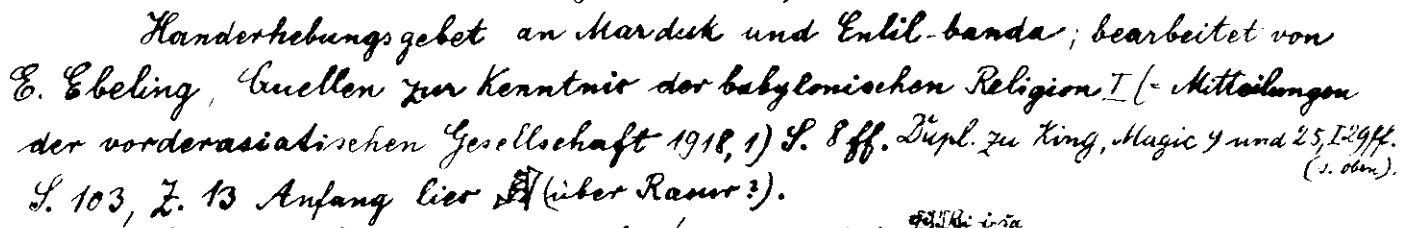 Handerhebungsgebet an Marduk und Enlil-banda; bearbeitet von
E. Ebeling, Quellen zur Kenntnis der babylonischen Religion I (= Mitteilungen
der vorderasiatischen Gesellschaft 1918, 1) S. 8 ff. Dupl. zu King, Magic 9 und 25, I 29 ff.
(s. oben).
S. 103, Z. 13 Anfang lies (über Rasur?).